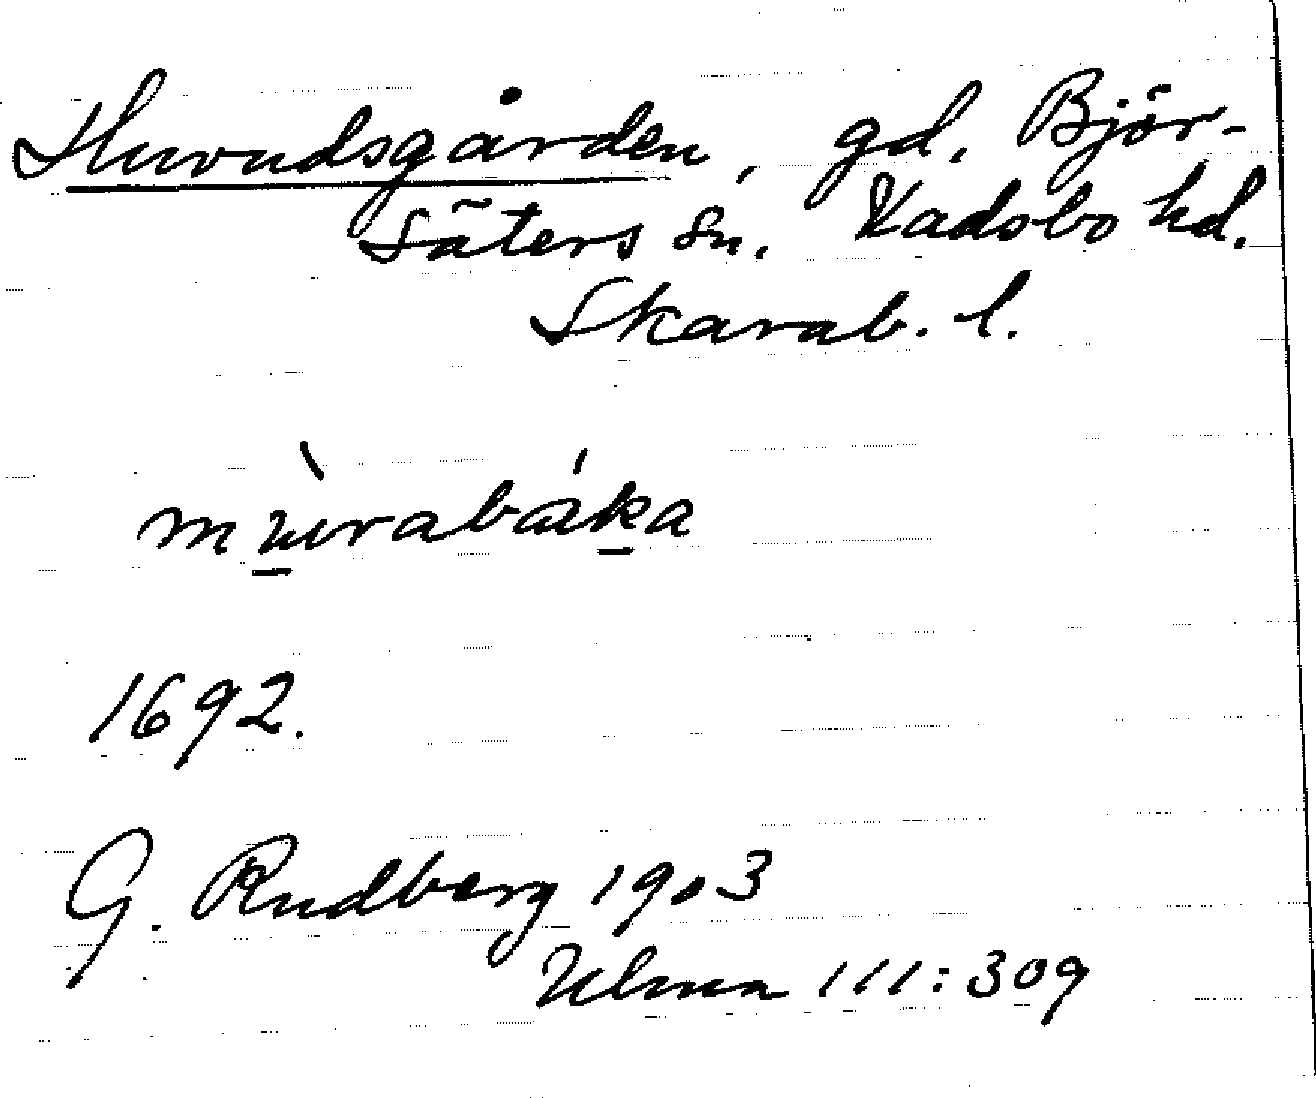 Huvudsgården, gd, Björ-
säters sn. Vadsbo hd.
Skarab. l.
mùrabáka
1692.
G. Rudberg 1903
Ulma 111:309